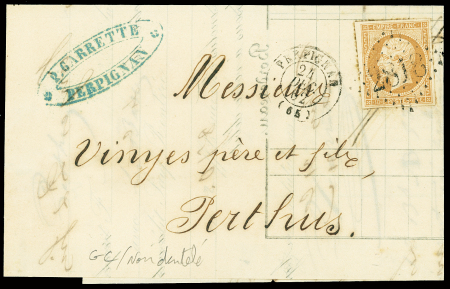 P. GARRETTE
PERPIGNAN
PERPIGNAN
24
(65)
EMPIRE FRANC
2818
Messieurs
Vinyes père et fils,
Perthus.
GC/Non dentelé